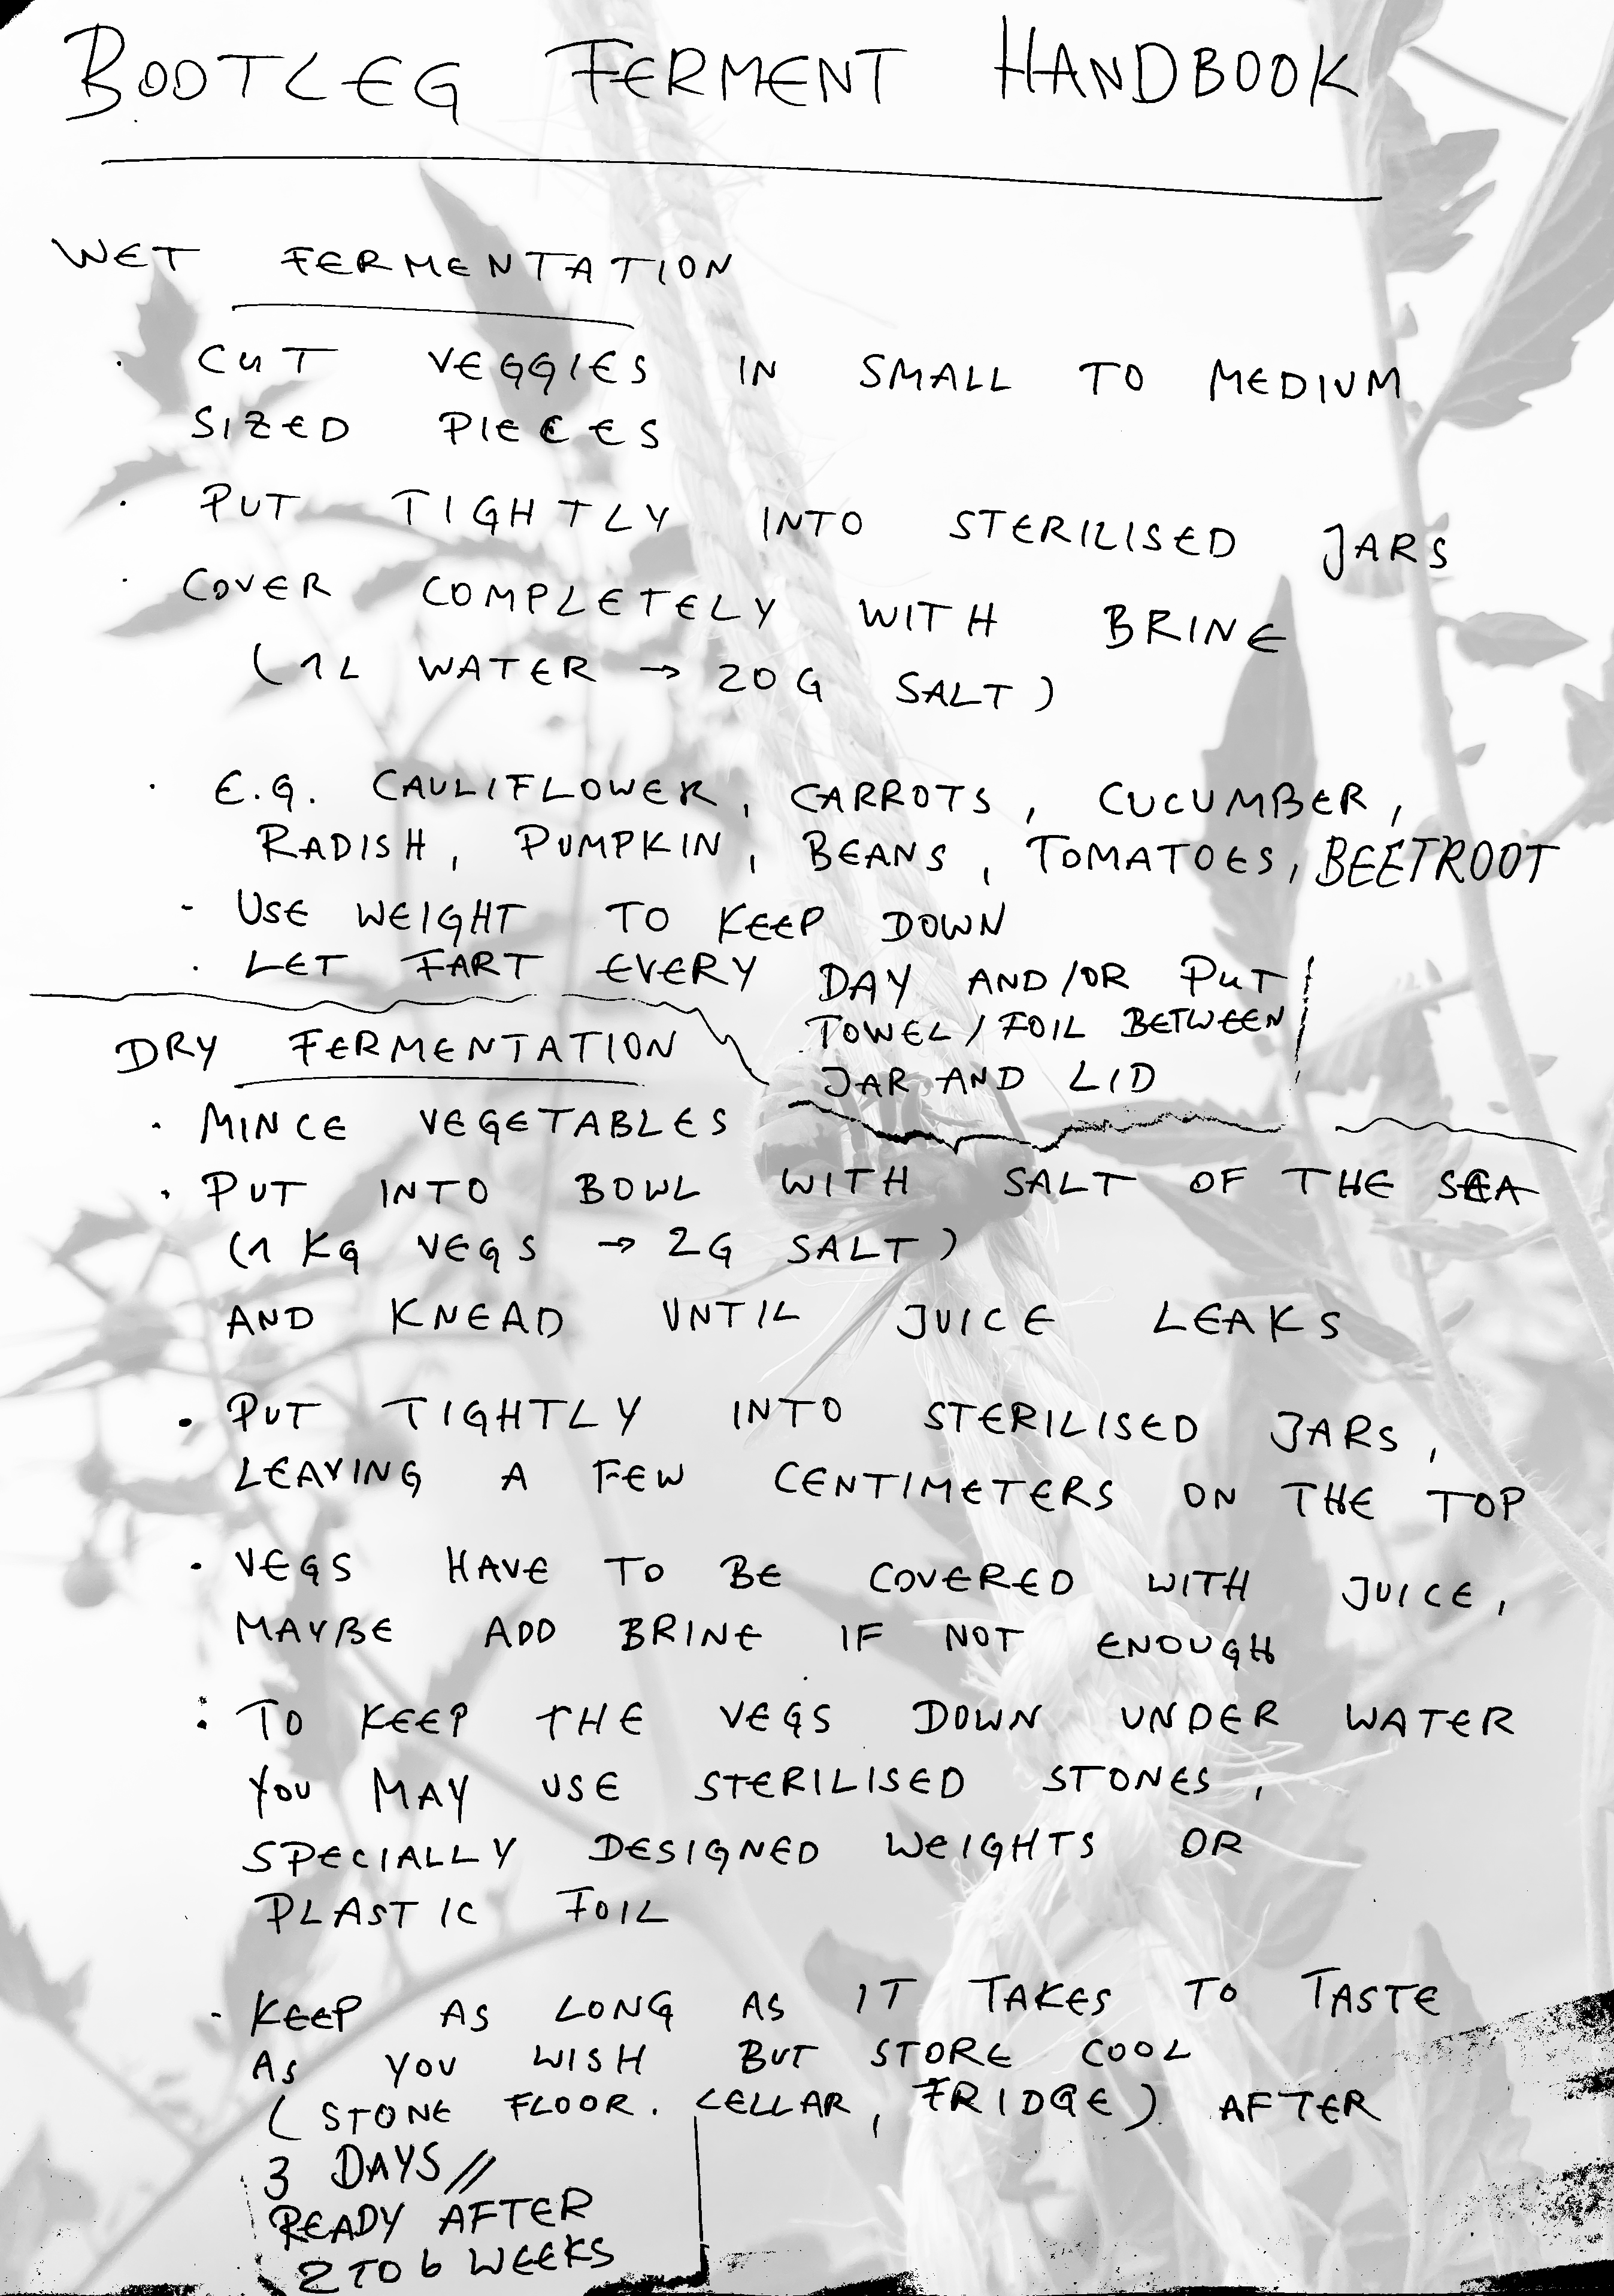 BOOTLEG FERMENT HANDBOOK
WET FERMENTATION
· CUT VEGGIES IN SMALL TO MEDIUM
SIZED PIECES
· PUT TIGHTLY INTO STERILISED JARS
· COVER COMPLETELY WITH BRINE
(1L WATER → 20G SALT)
· E.G. CAULIFLOWER, CARROTS, CUCUMBER,
RADISH, PUMPKIN, BEANS, TOMATOES, BEETROOT
- USE WEIGHT TO KEEP DOWN
· LET FART EVERY DAY AND/OR PUT
TOWEL/FOIL BETWEEN
JAR AND LID
DRY FERMENTATION
· MINCE VEGETABLES
· PUT INTO BOWL WITH SALT OF THE SEA
(1 KG VEGS → 2G SALT)
AND KNEAD UNTIL JUICE LEAKS
· PUT TIGHTLY INTO STERILISED JARS,
LEAVING A FEW CENTIMETERS ON THE TOP
· VEGS HAVE TO BE COVERED WITH JUICE,
MAYBE ADD BRINE IF NOT ENOUGH
: TO KEEP THE VEGS DOWN UNDER WATER
YOU MAY USE STERILISED STONES,
SPECIALLY DESIGNED WEIGHTS OR
PLASTIC FOIL
- KEEP AS LONG AS IT TAKES TO TASTE
AS YOU WISH BUT STORE COOL
(STONE FLOOR. CELLAR, FRIDGE) AFTER
3 DAYS //
READY AFTER
2 TO 6 WEEKS